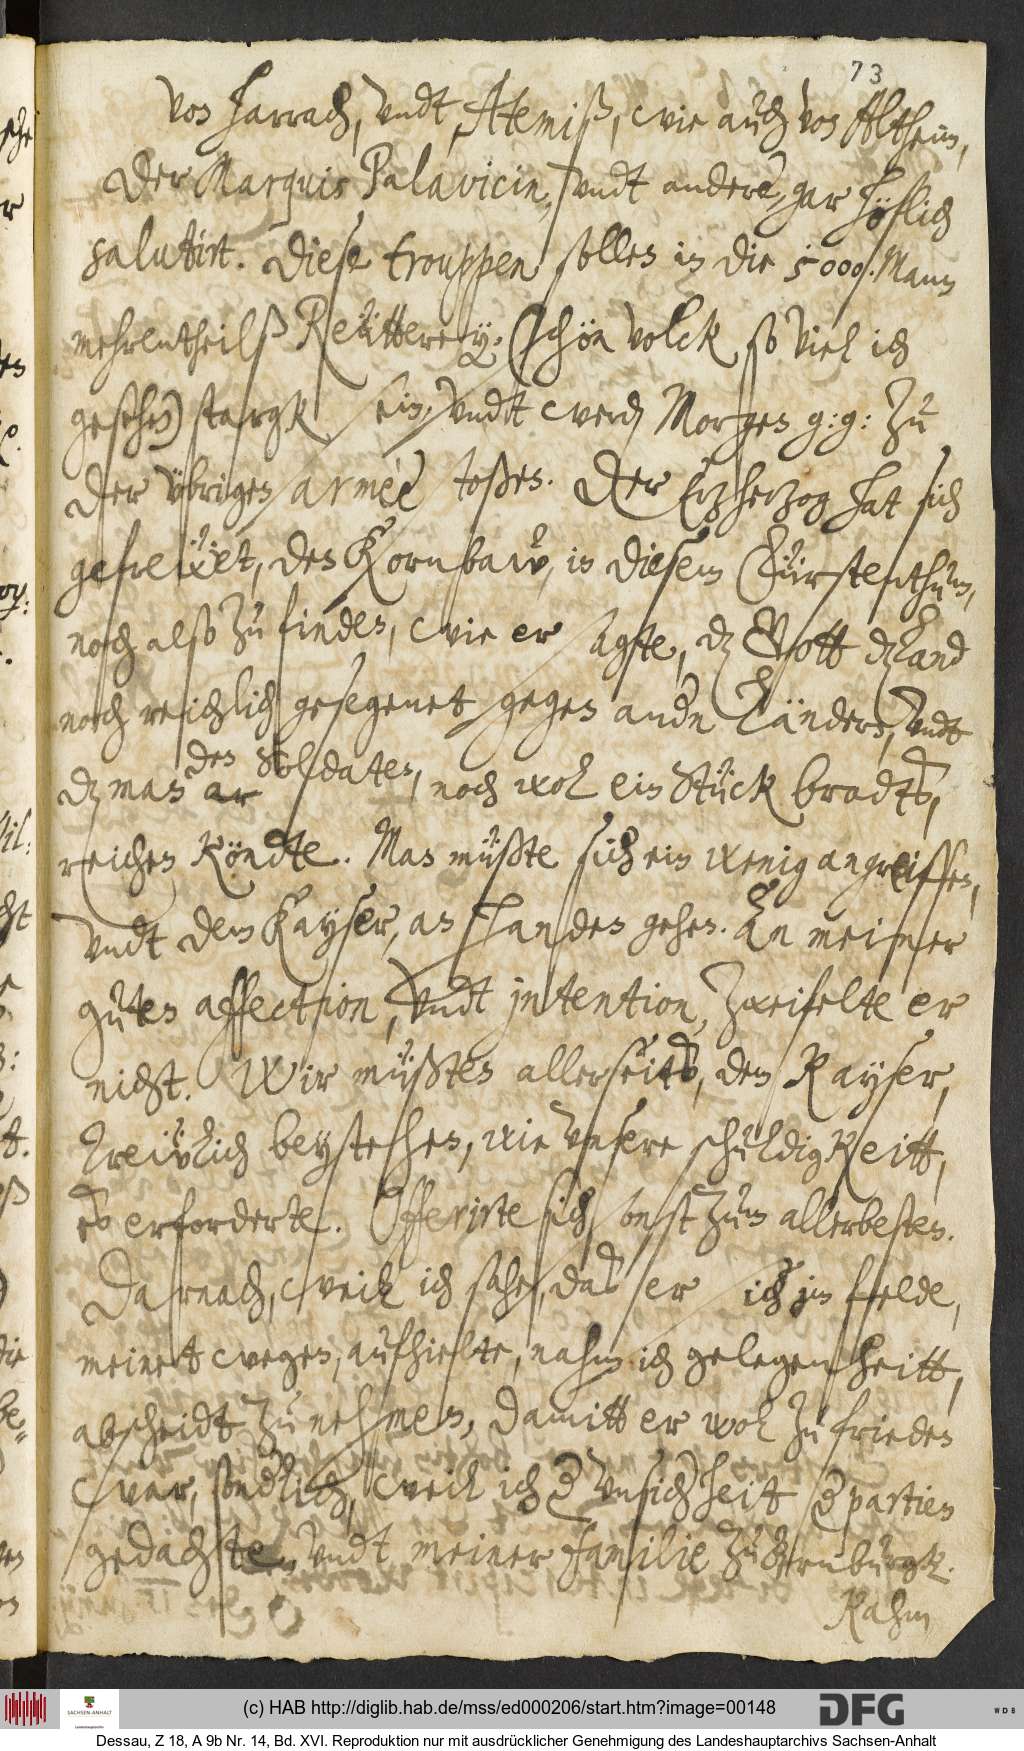 73
von Harrach, vndt Atemiß, wie auch von Altheim,
Der Marquis Palavicin, vndt andere, gar höflich
salutirt. Diese trouppen sollen in die 5000. Mann
mehrentheilß Reütterey, (schön volck so viel ich
gesehen) starck sein, vndt werden Morgen g: g: zu
der übrigen armèe stoßen. Der Ertzhertzog hat sich
gefreẅet, den Kornbaw, in diesem Fürstenthum,
noch also zu finden, wie er sagte, dz Gott dz Land
noch reichlich gesegenet gegen andern Ländern, vndt
dz man den Soldaten, noch wol ein Stück brodts,
reichen köndte. Man müßte sich ein wenig angreiffen,
vndt dem Kayser, an Handen gehen. An meiner
guten affection, vndt jntention, zweifelte er
nicht. Wir müßten allerseits, dem Kayser,
treẅlich beystehen, wie vnsere schuldigkeitt,
es erforderte. Offerirte sich sonst zum allerbesten.
Darnach, weil ich sahe, das er sich jm felde,
meinet wegen, aufhielte, nahm ich gelegenheitt,
abscheidt zu nehmen, damitt er wol zu frieden
war, sonderlich, weil ich der vnsicherheit der partien
gedachte, vndt meiner familie zu Bernburgk.
Kahm
(c) HAB http://diglib.hab.de/mss/ed000206/start.htm?image=00148
SACHSEN-ANHALT
DFG
WDB
Dessau, Z 18, A 9b Nr. 14, Bd. XVI. Reproduktion nur mit ausdrücklicher Genehmigung des Landeshauptarchivs Sachsen-Anhalt